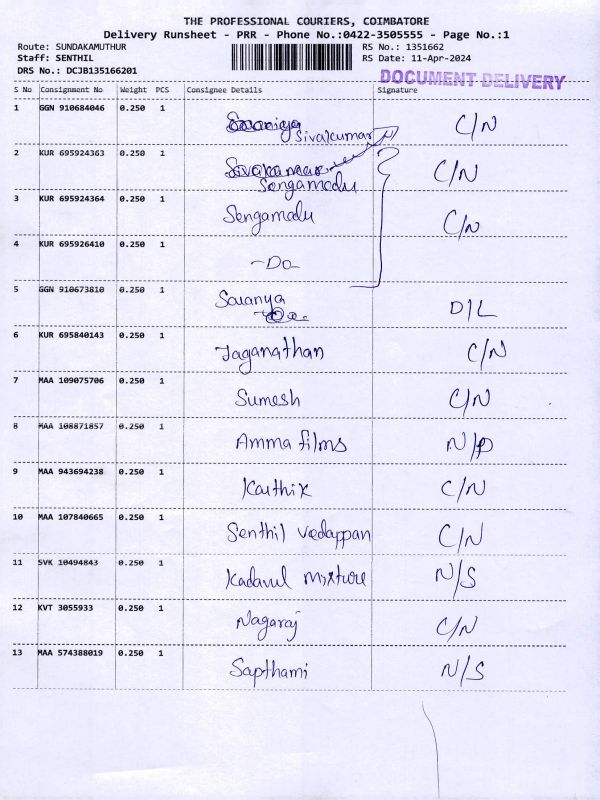 THE PROFESSIONAL COURIERS, COIMBATORE
Delivery Runsheet - PRR - Phone No.:0422-3505555 - Page No.:1
Route: SUNDAKAMUTHUR RS No.: 1351662
Staff: SENTHIL RS Date: 11-Apr-2024
DRS No.: DCJB135166201
DOCUMENT DELIVERY
S No Consignment No Weight PCS Consignee Details Signature
1 GGN 910684046 0.250 1 Sivakumar C/N
2 KUR 695924363 0.250 1 Sivakumar C/N
Sengamadu
3 KUR 695924364 0.250 1 Sengamadu C/N
4 KUR 695926410 0.250 1 -Do
5 GGN 910673810 0.250 1 Saranya D/L
6 KUR 695840143 0.250 1 Jaganathan C/N
7 MAA 109075706 0.250 1 Sumesh C/N
8 MAA 108871857 0.250 1 Amma films N/P
9 MAA 943694238 0.250 1 Karthik C/N
10 MAA 107840665 0.250 1 Senthil Vedappan C/N
11 SVK 10494843 0.250 1 Kadavul mixture N/S
12 KVT 3055933 0.250 1 Nagaraj C/N
13 MAA 574388019 0.250 1 Sapthami N/S